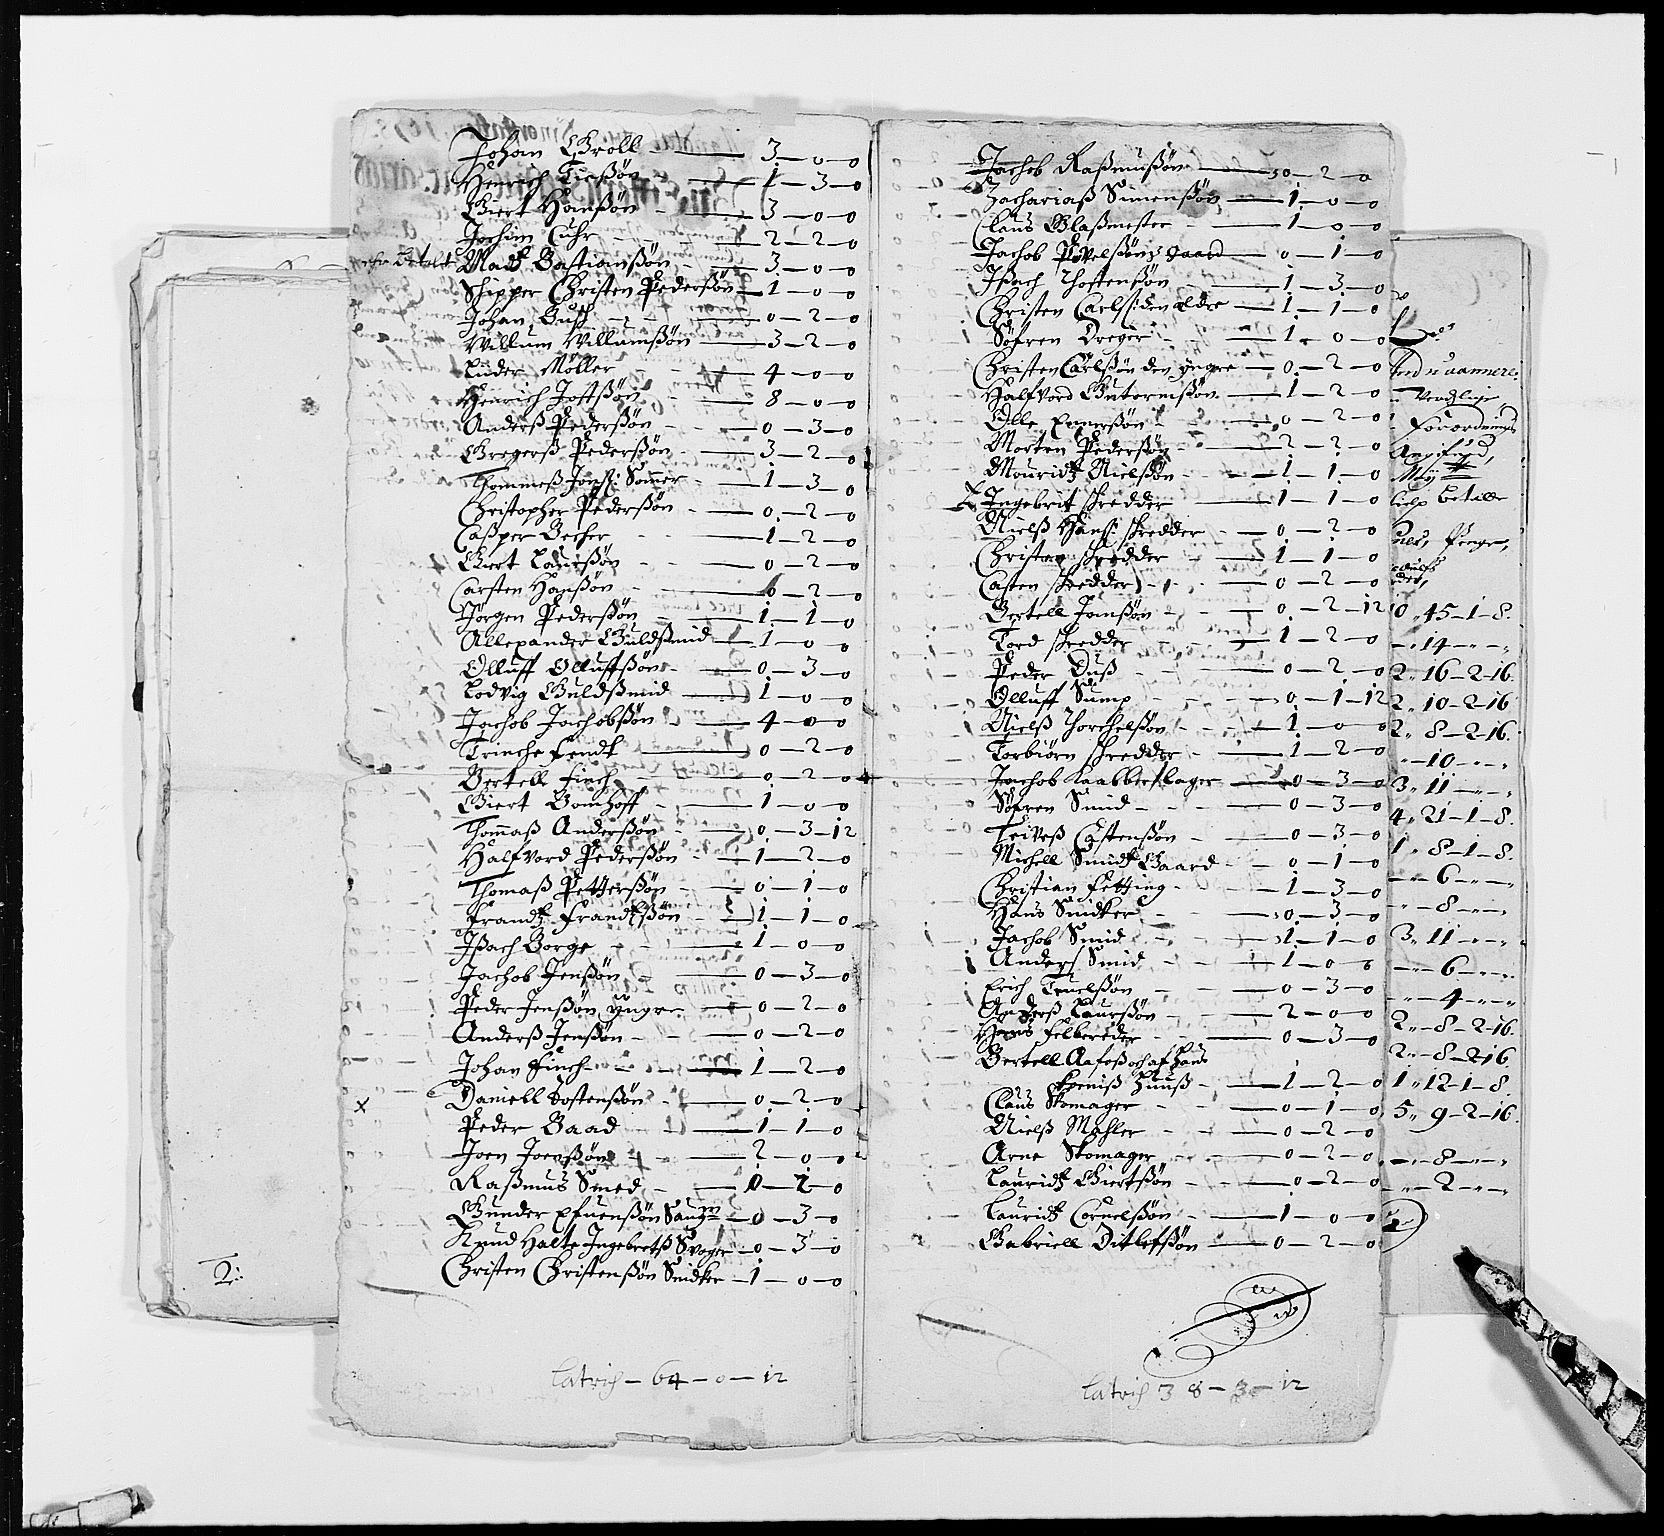 Johan Groll — 3 — 0 — 0
Henrich Tießøn — 1 — 3 — 0
Giert Hanßøn — 3 — 0 — 0
Jochim Cuhr — 2 — 2 — 0
betalt Madtz Bastianßøn — 3 — 0 — 0
Schipper Christen Pederßøn — 1 — 0 — 0
Johan Busch — 0 — 2 — 0
Willum Willumßøn — 3 — 2 — 0
Lüder Møller — 4 — 0 — 0
Henrich Jostßøn — 8 — 0 — 0
Anderß Pederßøn — 0 — 3 — 0
Gregerß Pederßøn — 3 — 2 — 0
Thommeß Jonß: Somer — 1 — 3 — 0
Christopher Pederßøn — 0 — 2 — 0
Caßper Becher — 1 — 2 — 0
Giert Laurßøn — 0 — 2 — 0
Carsten Hanßøn — 0 — 2 — 0
Jørgen Pederßøn — 1 — 1 — 0
Allexander Guldßmid — 1 — 0 — 0
Olluff Olluffßøn — 0 — 3 — 0
Lodvig Guldßmid — 1 — 0 — 0
Jachob Jachobßøn — 4 — 0 — 0
Trinche Fendt — 0 — 2 — 0
Bertell Finch — 0 — 2 — 0
Giert Bomhoff — 1 — 0 — 0
Thomaß Anderßøn — 0 — 3 — 12
Halfvord Pederßøn — 1 — 2 — 0
Thomaß Petterßøn — 0 — 1 — 0
Frandtz Frandtzßøn — 1 — 1 — 0
Ißach Borge — 1 — 0 — 0
Jachob Jenßøn — 0 — 3 — 0
Peder Jenßøn yngre — 0 — 2 — 0
Anderß Jenßøn — 0 — 2 — 0
Johan Finch — 1 — 2 — 0
x Daniell Tostenßøn — 0 — 2 — 0
Peder Baad — 1 — 1 — 0
Joen Joenßøn — 2 — 0 — 0
Raßmus Smed — 0 — 2 — 0
Gunder — 0 — 3 — 0
Knud Halte Ingebretß Svoger — 0 — 3 — 0
Christen Christenßøn Snidker — 1 — 0 — 0
Latrich — 64 — 0 — 12
2:
Jachob Raßmußøn — 0 — 2 — 0
Zachariaß Simenßøn — 1 — 0 — 0
Claus Glaßmester — 1 — 0 — 0
Jachob Povelßønß gaard — 0 — 1 — 0
Ißach Thostenßøn — 1 — 3 — 0
Christen Carlß: den ældre — 1 — 1 — 0
Søfren Dreyer — 1 — 0 — 0
Christen Carlßøn den yngre — 0 — 2 — 0
Halfvord Gutormßøn — 1 — 2 — 0
Olle Enerßøn — 0 — 2 — 0
Morten Pederßøn — 2 — 2 — 0
Mouridtz Nielßøn — 1 — 1 — 0
Ingebrit skredder — 1 — 1 — 0
Nielß Hanß: skredder — 0 — 2 — 0
Christen skredder — 1 — 1 — 0
Casten skredder — 0 — 2 — 0
Bertell Jonßøn — 0 — 2 — 12
Tord skredder — 1 — 2 — 0
Peder Duß — 0 — 2 — 0
Olluff Sump — 0 — 1 — 12
Nielß Thorchelßøn — 1 — 0 — 0
Torbiørn skredder — 1 — 2 — 0
Jachob Kaabberslager — 0 — 3 — 0
Søfren Smid — 0 — 3 — 0
Teiveß Castenßøn — 0 — 3 — 0
Michell Smidtz Gaard — 0 — 1 — 0
Christian Fetting — 1 — 3 — 0
Hans Snidker — 0 — 3 — 0
Jachob Smid — 1 — 1 — 0
Anders Smid — 1 — 0 — 0
Erich Truelßøn — 0 — 3 — 0
Anderß Laurßøn — 2 — 0 — 0
Hans Felbereder — 0 — 3 — 0
Bertell Aafoß och af Hans
Huuß — 1 — 2 — 0
Claus Skomager — 0 — 1 — 0
Nielß Mahler — 0 — 2 — 0
Arne Skomager — 0 — 2 — 0
Lauridtz Giertßøn — 0 — 2 — 0
Lauridtz Cornelßøn — 1 — 0 — 0
Gabriell Ditlefßøn — 0 — 2 — 0
Latrich 38 — 3 — 12
Forordnings
betalle
45 — 1 — 8
14
2 „ 16 — 2 — 16
2 „ 10 — 2 — 16
2 „ 8 — 2 — 16
10
3 „ 11
4 „ 21 — 1 — 8
1 „ 8 — 1 — 8
6
8
3 „ 11
6
4
2 „ 8 — 2 — 16
2 „ 8 — 2 — 16
1 „ 12 — 1 — 8
5 „ 9 — 2 — 16
8
2